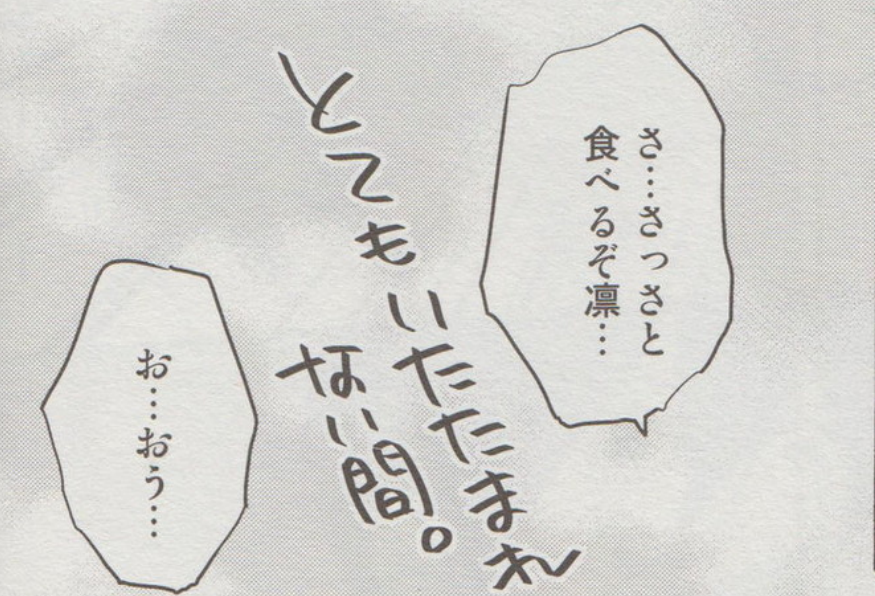 さ…さっさと
食べるぞ凛…
とてもいたたまれ
ない間。
お…おう…